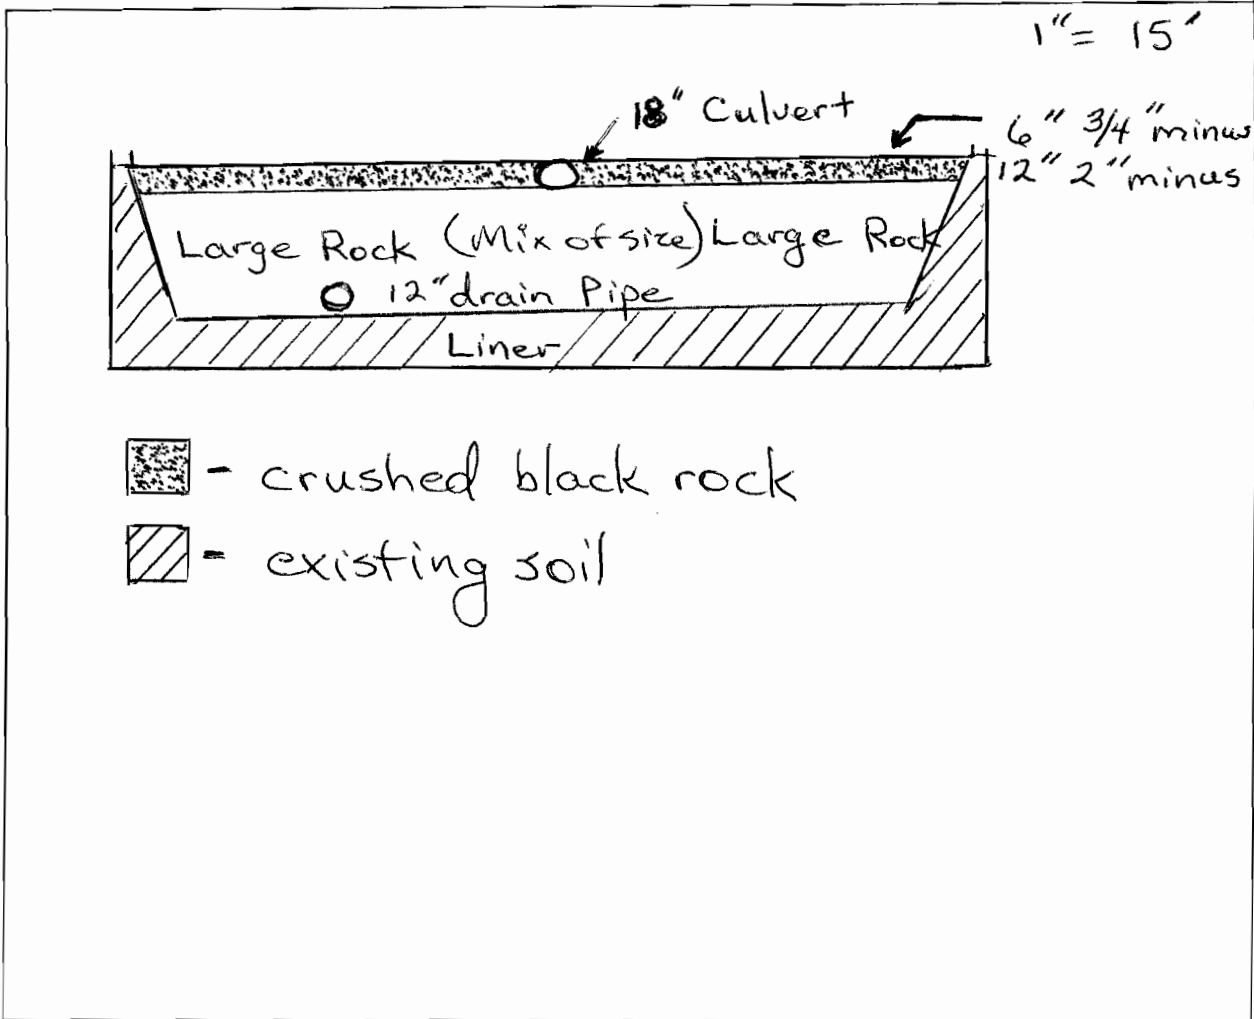 1" = 15'
18" Culvert
6" 3/4" minus
12" 2" minus
Large Rock (Mix of size) Large Rock
12" drain Pipe
Liner
- crushed black rock
= existing soil